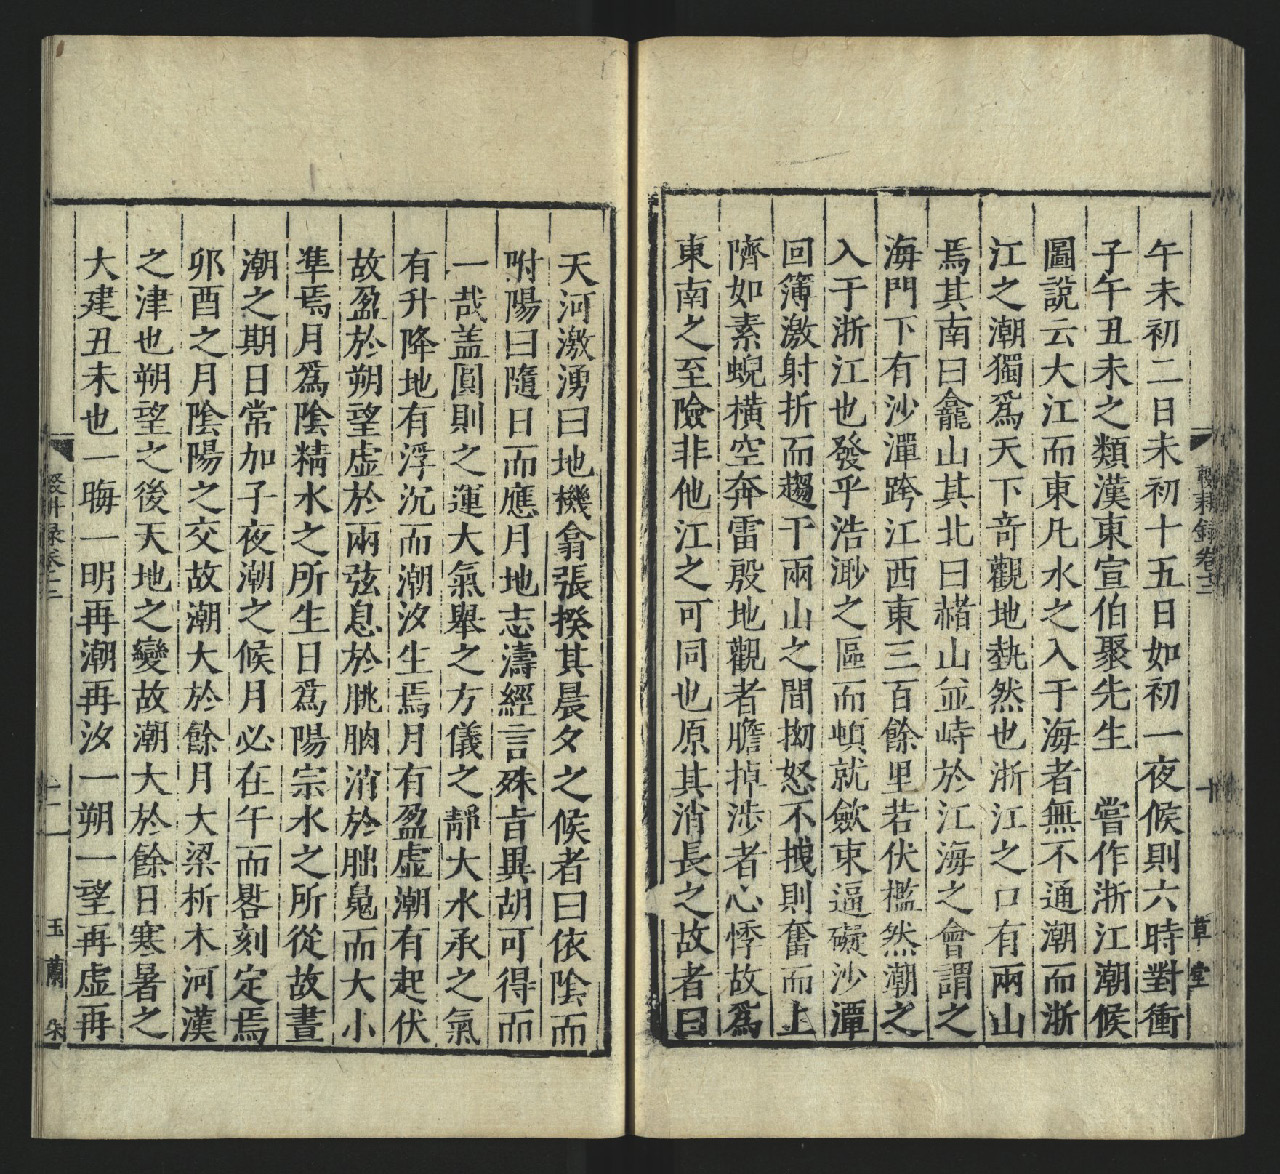 午未初二日未初十五日如初一夜候則六時對衝
子午丑未之類漢東宣伯聚先生　嘗作浙江潮候
圖說云大江而東凡水之入于海者無不通潮而浙
江之潮獨爲天下竒觀地埶然也浙江之口有兩山
焉其南曰龕山其北曰赭山並峙於江海之會謂之
海門下有沙潭跨江西東三百餘里若伏檻然潮之
入于浙江也發乎浩渺之區而頓就歛東逼礙沙潭
回簿激射折而趨于兩山之間拗怒不洩則奮而上
隮如素蜺橫空奔雷殷地觀者膽掉涉者心悸故爲
東南之至險非他江之可同也原其消長之故者曰
輟耕錄卷十二
十
草堂
天河激湧曰地機翕張揆其晨夕之候者曰依陰而
附陽曰隨日而應月地志濤經言殊旨異胡可得而
一哉盖圓則之運大氣舉之方儀之靜大水承之氣
有升降地有浮沉而潮汐生焉月有盈虛潮有起伏
故盈於朔望虛於兩弦息於朓朒消於朏䰟而大小
準焉月爲陰精水之所生日爲陽宗水之所從故晝
潮之期日常加子夜潮之候月必在午而晷刻定焉
卯酉之月陰陽之交故潮大於餘月大梁析木河漢
之津也朔望之後天地之變故潮大於餘日寒暑之
大建丑未也一晦一明再潮再汐一朔一望再虛再
玉蘭